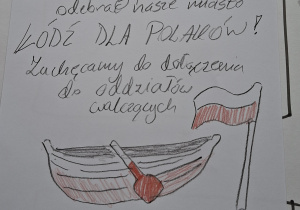 odebrać nasze miasto
ŁÓDŹ DLA POLAKÓW!
Zachęcamy do dołączenia
do oddziałów
walczących